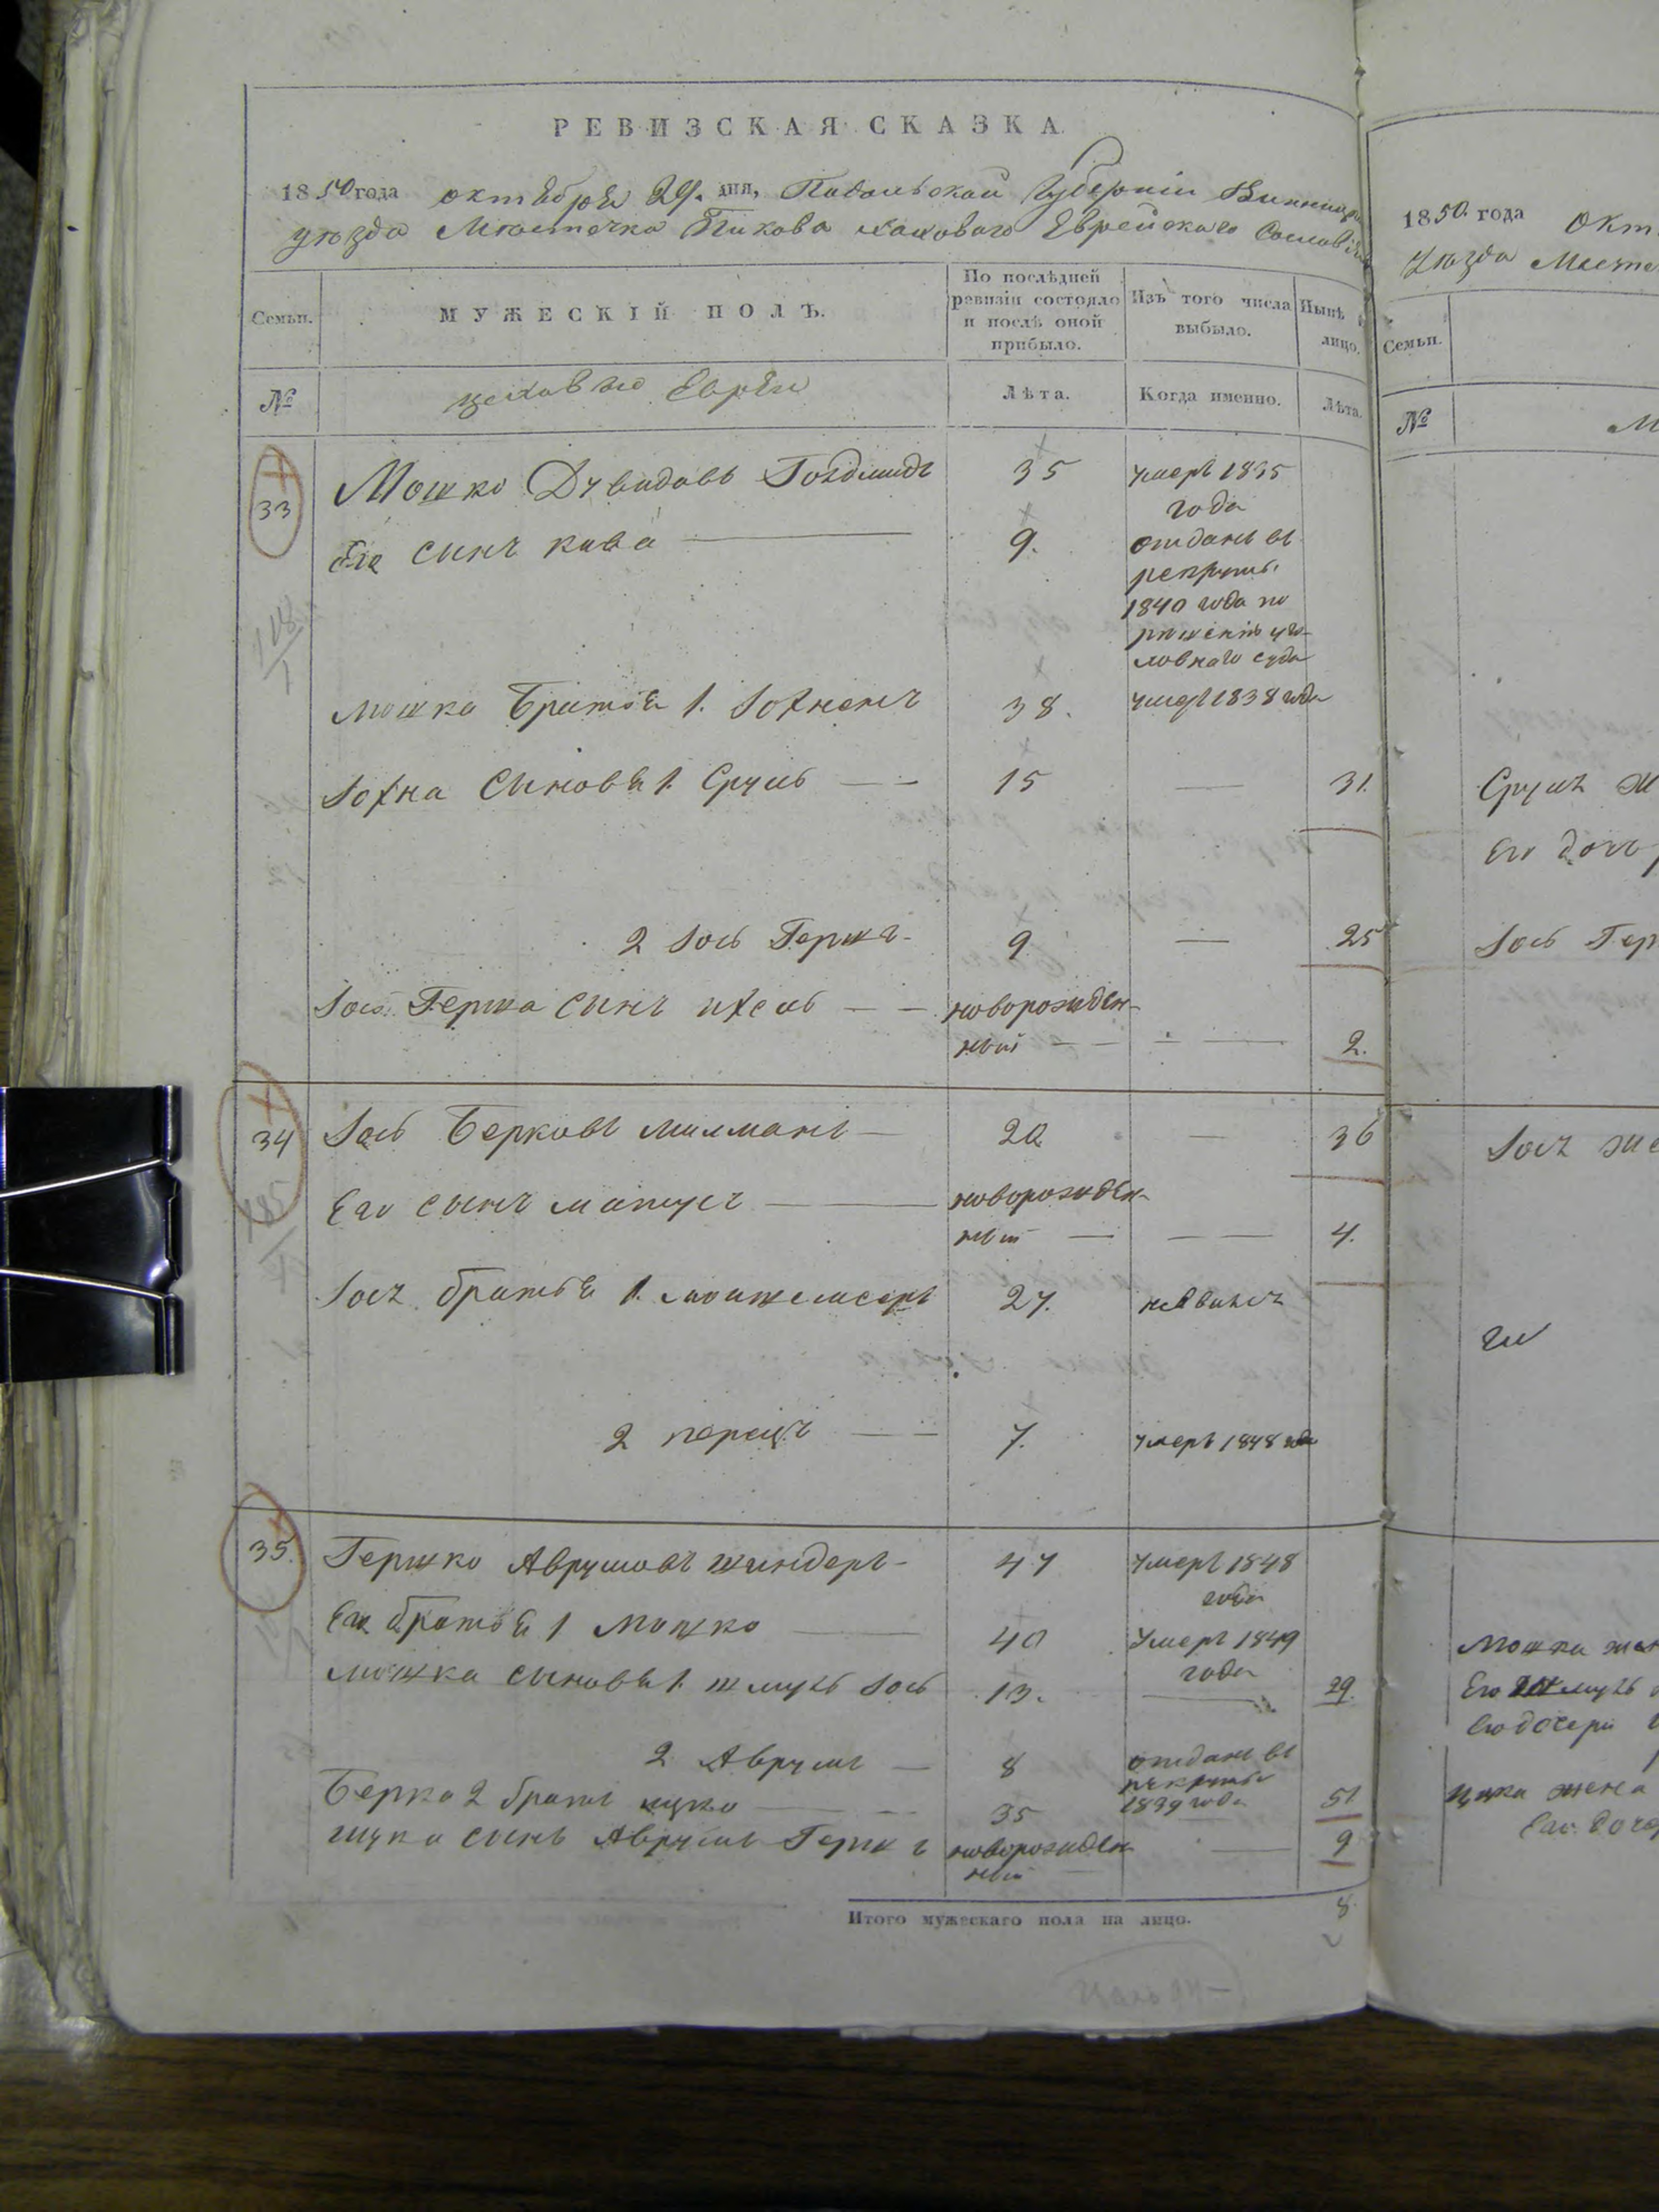 РЕВИЗСКАЯ СКАЗКА
1850 года октября 29. дня, Подольской Губернии
уезда Местечка Пикова Еврейского
Семьи. МУЖЕСКІЙ ПОЛЪ. По послѣдней ревизіи состояло и послѣ оной прибыло. Изъ того числа выбыло. Нынѣ лицо.
№ цеховые Евреи Лѣта. Когда именно. Лѣта.
33 Мошко Дувидовъ Гольдшмидъ 35 умеръ 1835
года
Его сынъ Кива 9. отданъ въ
рекруты
1840 года по
решению уго-
ловнаго суда
Мошка Братья 1. Іохненъ 38. умеръ 1838 года
Іохна Сыновья 1. Сруль 15 31.
2 Іось Гершъ 9 25
Іось Герша сынъ Ихель новорожден-
ный 2.
34 Іось Берковъ Милманъ 20 36
Его сынъ новорожден-
ный 4.
Іося братья 1. 27.
2 Перецъ 7. умеръ 1848 года
35. Гершко Аврумовъ 47 умеръ 1848
года
Его братья 1 Мошко 40 Умеръ 1849
года
Мошка сыновья 1. Шмуль Іось 13. 29.
2 Аврумъ 8 отданъ въ
рекруты
1839 года
2 братъ Ицко 35 51.
Ицка сынъ Аврумъ Гершъ новорожден
ный 9
Итого мужескаго пола на лицо. 8
1850. года Окт
Уезда Месте
Семьи.
№ М
Сруля ж
Его доч
Іось Гер
Іося же
Мошка жен
Его Шмуль
Его дочери
Ицка жена
Его доче